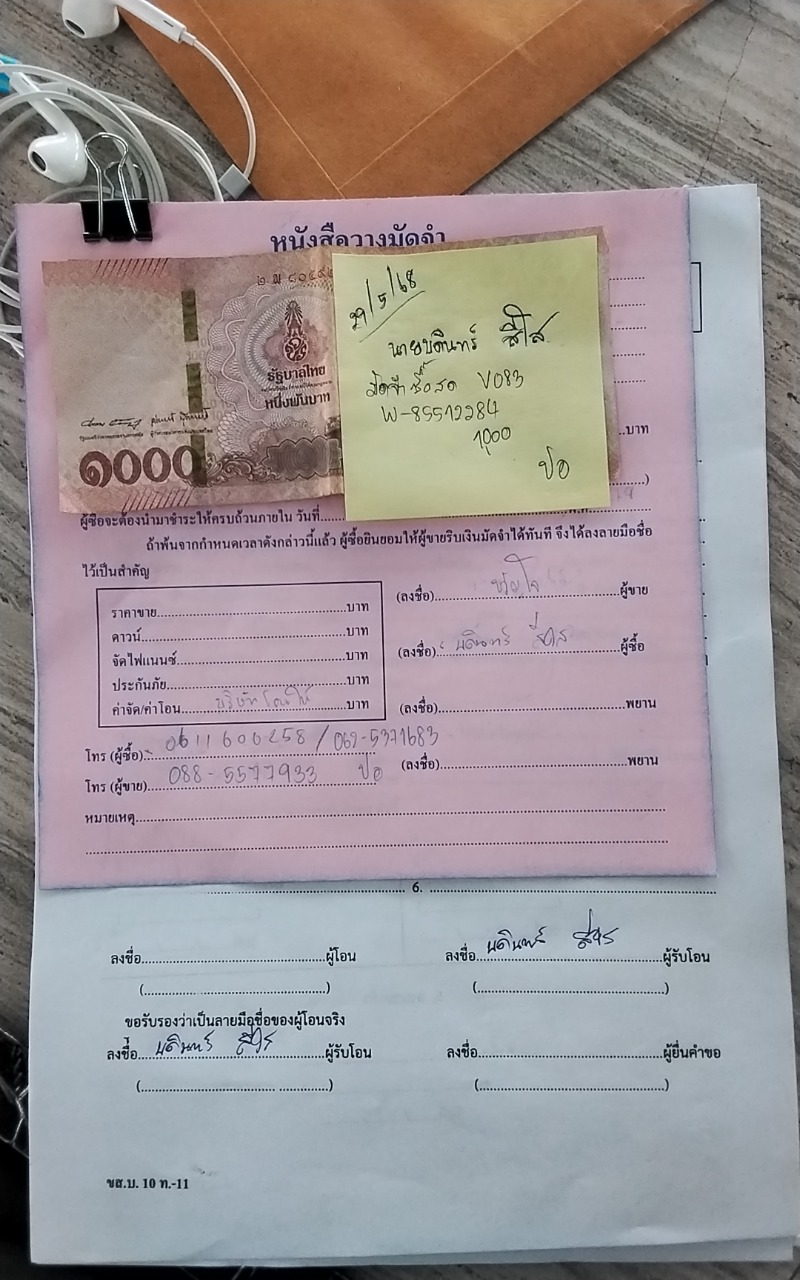 หนังสือวางมัดจำ
รัฐบาลไทย
หนึ่งพันบาท
๑๐๐๐
29/5/68
นายบดินทร์ สีใส
มัดจำซื้อสด V083
W-85512284
1,000
ปอ
บาท
)
ผู้ซื้อจะต้องนำมาชำระให้ครบถ้วนภายใน วันที่
ถ้าพ้นจากกำหนดเวลาดังกล่าวนี้แล้ว ผู้ซื้อยินยอมให้ผู้ขายริบเงินมัดจำได้ทันที จึงได้ลงลายมือชื่อ
ไว้เป็นสำคัญ
ราคาขาย..........บาท
ดาวน์..........บาท
จัดไฟแนนซ์..........บาท
ประกันภัย..........บาท
ค่าจัด/ค่าโอน..........บาท
(ลงชื่อ) ขวัญใจ ผู้ขาย
(ลงชื่อ) บดินทร์ สีใส ผู้ซื้อ
(ลงชื่อ)..........พยาน
(ลงชื่อ)..........พยาน
โทร (ผู้ซื้อ) 0611600258 / 062-5371683
โทร (ผู้ขาย) 088-5577933 ปอ
หมายเหตุ
6.
ลงชื่อ..........ผู้โอน
ลงชื่อ บดินทร์ สีใส ผู้รับโอน
(..........)
(..........)
ขอรับรองว่าเป็นลายมือชื่อของผู้โอนจริง
ลงชื่อ บดินทร์ สีใส ผู้รับโอน
ลงชื่อ..........ผู้ยื่นคำขอ
(..........)
(..........)
ขส.บ. 10 ท.-11